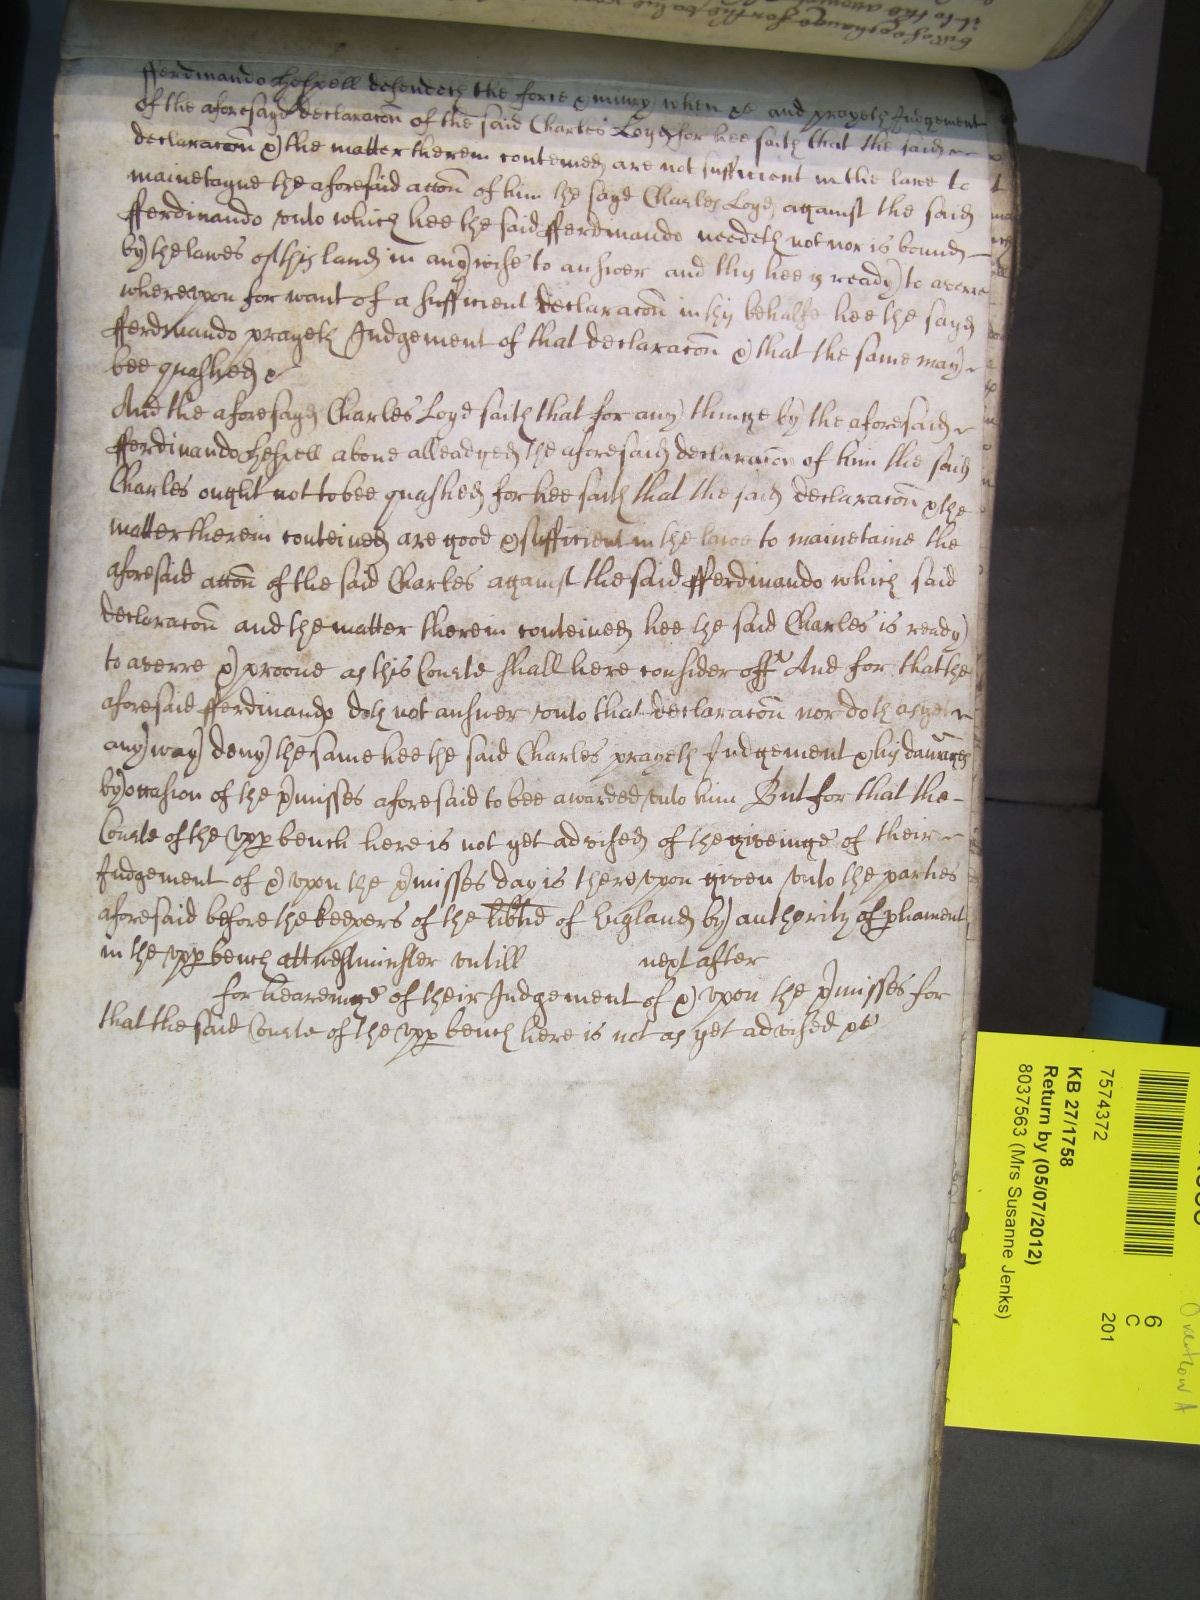 fferdinando defendeth the force & iniury when &c and prayeth Judgement
of the aforesayd declaracon of the said Charles Loyd for hee saith that the said
declaracon & the matter therein conteined are not sufficient in the lawe to
mainetayne the aforesaid accon of him the sayd Charles Loyd against the said
fferdinando vnto which hee the said fferdinando needeth not nor is bound
by the lawes of this land in any wise to answer and this hee is ready to averre
wherevpon for want of a sufficient declaracon in this behalfe hee the sayd
fferdinando prayeth Judgement of that declaracon & that the same may
bee quashed &c
And the aforesayd Charles Loyd saith that for any thinge by the aforesaid
fferdinando above alleadged the aforesaid declaracon of him the said
Charles ought not to bee quashed for hee saith that the said declaracon & the
matter therein conteined are good & sufficient in the lawe to mainetaine the
aforesaid accon of the said Charles against the said fferdinando which said
declaracon and the matter therein conteined hee the said Charles is ready
to averre & proove as this Courte shall here consider off And for that the
aforesaid fferdinando doth not answer vnto that declaracon nor doth as yet
any way deny the same hee the said Charles prayeth Judgement & his damages
by occasion of the pmisses aforesaid to bee awarded vnto him But for that the
Courte of the vpp bench here is not yet advised of the giveinge of their
Judgement of & vpon the pmisses day is therevpon given vnto the parties
aforesaid before the keepers of the libtie of England by authority of pliament
in the vpp bench att westminster vntill next after
for heareinge of their Judgement of & vpon the pmisses for
that the said Courte of the vpp bench here is not as yet advised &c
7574372
KB 27/1758
Return by (05/07/2012)
8037563 (Mrs Susanne Jenks)
6
C
201